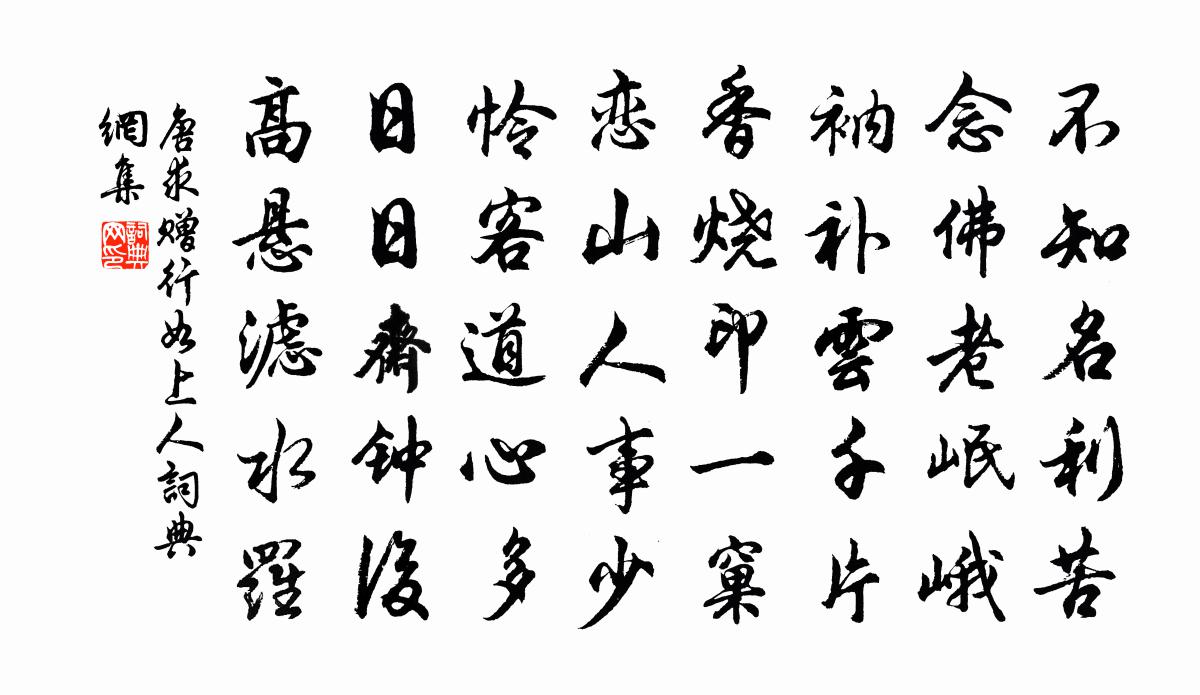 不知名利苦
念佛老岷峨
衲补雲千片
香烧印一窠
恋山人事少
怜客道心多
日日齋钟後
高悬滤水羅
唐求贈行如上人詞典
網集
詞典
网印